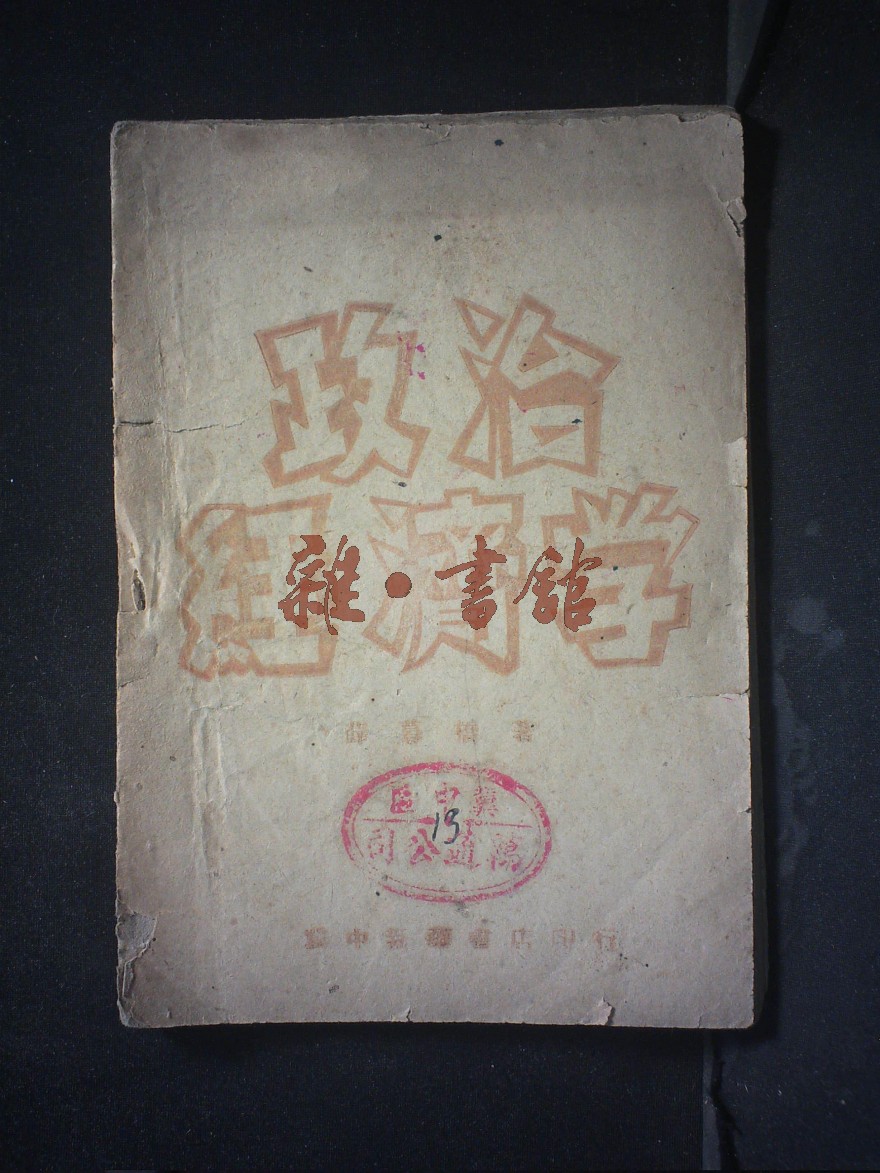 政治
經濟学
雜·書館
薛暮橋著
冀中區
萬通公司
13
冀中新華書店印行